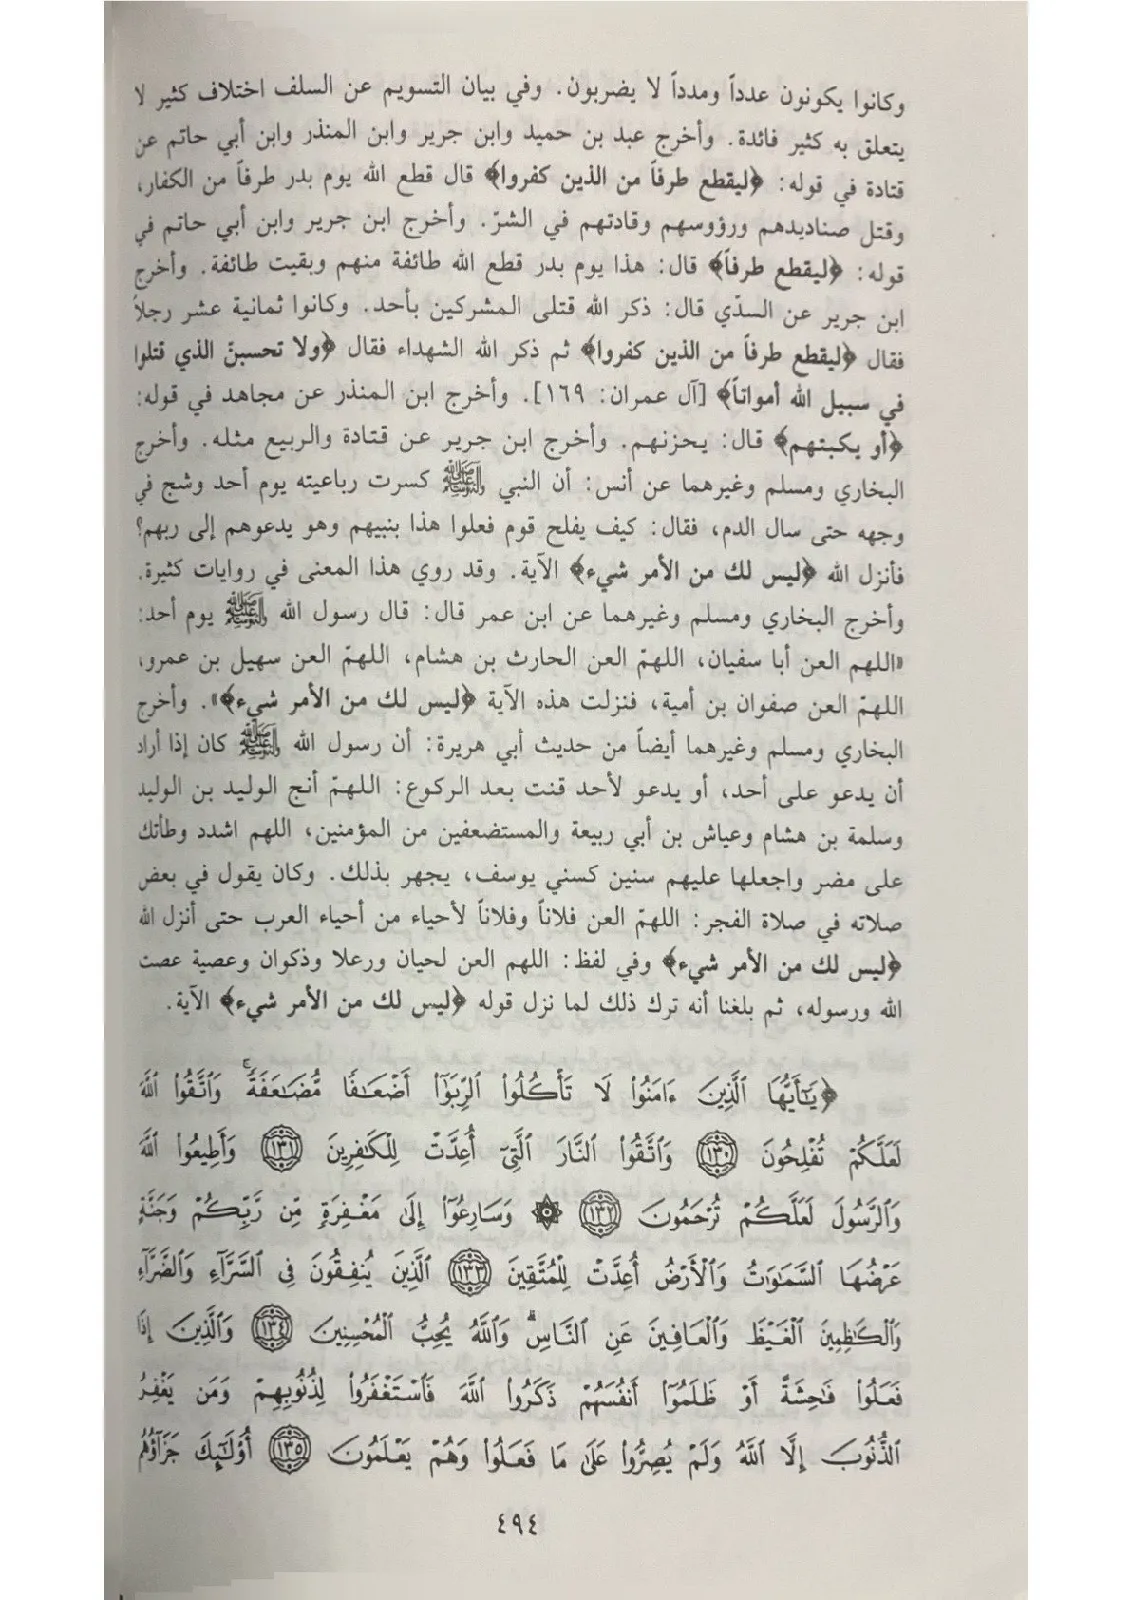 وكانوا يكونون عدداً ومدداً لا يضربون. وفي بيان التسويم عن السلف اختلاف كثير لا
يتعلق به كثير فائدة. وأخرج عبد بن حميد وابن جرير وابن المنذر وابن أبي حاتم عن
قتادة في قوله: ﴿ليقطع طرفاً من الذين كفروا﴾ قال قطع الله يوم بدر طرفاً من الكفار،
وقتل صناديدهم ورؤوسهم وقادتهم في الشرّ. وأخرج ابن جرير وابن أبي حاتم في
قوله: ﴿ليقطع طرفاً﴾ قال: هذا يوم بدر قطع الله طائفة منهم وبقيت طائفة. وأخرج
ابن جرير عن السدّي قال: ذكر الله قتلى المشركين بأحد. وكانوا ثمانية عشر رجلاً
فقال ﴿ليقطع طرفاً من الذين كفروا﴾ ثم ذكر الله الشهداء فقال ﴿ولا تحسبنّ الذي قتلوا
في سبيل الله أمواتاً﴾ [آل عمران: ١٦٩]. وأخرج ابن المنذر عن مجاهد في قوله:
﴿أو يكبتهم﴾ قال: يحزنهم. وأخرج ابن جرير عن قتادة والربيع مثله. وأخرج
البخاري ومسلم وغيرهما عن أنس: أن النبي ﷺ كسرت رباعيته يوم أحد وشج في
وجهه حتى سال الدم، فقال: كيف يفلح قوم فعلوا هذا بنبيهم وهو يدعوهم إلى ربهم؟
فأنزل الله ﴿ليس لك من الأمر شيء﴾ الآية. وقد روي هذا المعنى في روايات كثيرة.
وأخرج البخاري ومسلم وغيرهما عن ابن عمر قال: قال رسول الله ﷺ يوم أحد:
«اللهم العن أبا سفيان، اللهمّ العن الحارث بن هشام، اللهمّ العن سهيل بن عمرو،
اللهمّ العن صفوان بن أمية، فنزلت هذه الآية ﴿ليس لك من الأمر شيء﴾». وأخرج
البخاري ومسلم وغيرهما أيضاً من حديث أبي هريرة: أن رسول الله ﷺ كان إذا أراد
أن يدعو على أحد، أو يدعو لأحد قنت بعد الركوع: اللهمّ أنج الوليد بن الوليد
وسلمة بن هشام وعياش بن أبي ربيعة والمستضعفين من المؤمنين، اللهم اشدد وطأتك
على مضر واجعلها عليهم سنين كسني يوسف، يجهر بذلك. وكان يقول في بعض
صلاته في صلاة الفجر: اللهمّ العن فلاناً وفلاناً لأحياء من أحياء العرب حتى أنزل الله
﴿ليس لك من الأمر شيء﴾ وفي لفظ: اللهم العن لحيان ورعلا وذكوان وعصية عصت
الله ورسوله، ثم بلغنا أنه ترك ذلك لما نزل قوله ﴿ليس لك من الأمر شيء﴾ الآية.
﴿يَٰٓأَيُّهَا ٱلَّذِينَ ءَامَنُوا۟ لَا تَأْكُلُوا۟ ٱلرِّبَوٰٓا۟ أَضْعَٰفًا مُّضَٰعَفَةً ۖ وَٱتَّقُوا۟ ٱللَّهَ
لَعَلَّكُمْ تُفْلِحُونَ ١٣٠ وَٱتَّقُوا۟ ٱلنَّارَ ٱلَّتِىٓ أُعِدَّتْ لِلْكَٰفِرِينَ ١٣١ وَأَطِيعُوا۟ ٱللَّهَ
وَٱلرَّسُولَ لَعَلَّكُمْ تُرْحَمُونَ ١٣٢ ۞ وَسَارِعُوٓا۟ إِلَىٰ مَغْفِرَةٍ مِّن رَّبِّكُمْ وَجَنَّةٍ
عَرْضُهَا ٱلسَّمَٰوَٰتُ وَٱلْأَرْضُ أُعِدَّتْ لِلْمُتَّقِينَ ١٣٣ ٱلَّذِينَ يُنفِقُونَ فِى ٱلسَّرَّآءِ وَٱلضَّرَّآءِ
وَٱلْكَٰظِمِينَ ٱلْغَيْظَ وَٱلْعَافِينَ عَنِ ٱلنَّاسِ ۗ وَٱللَّهُ يُحِبُّ ٱلْمُحْسِنِينَ ١٣٤ وَٱلَّذِينَ إِذَا
فَعَلُوا۟ فَٰحِشَةً أَوْ ظَلَمُوٓا۟ أَنفُسَهُمْ ذَكَرُوا۟ ٱللَّهَ فَٱسْتَغْفَرُوا۟ لِذُنُوبِهِمْ وَمَن يَغْفِرُ
ٱلذُّنُوبَ إِلَّا ٱللَّهُ وَلَمْ يُصِرُّوا۟ عَلَىٰ مَا فَعَلُوا۟ وَهُمْ يَعْلَمُونَ ١٣٥ أُو۟لَٰٓئِكَ جَزَآؤُهُم
٤٩٤